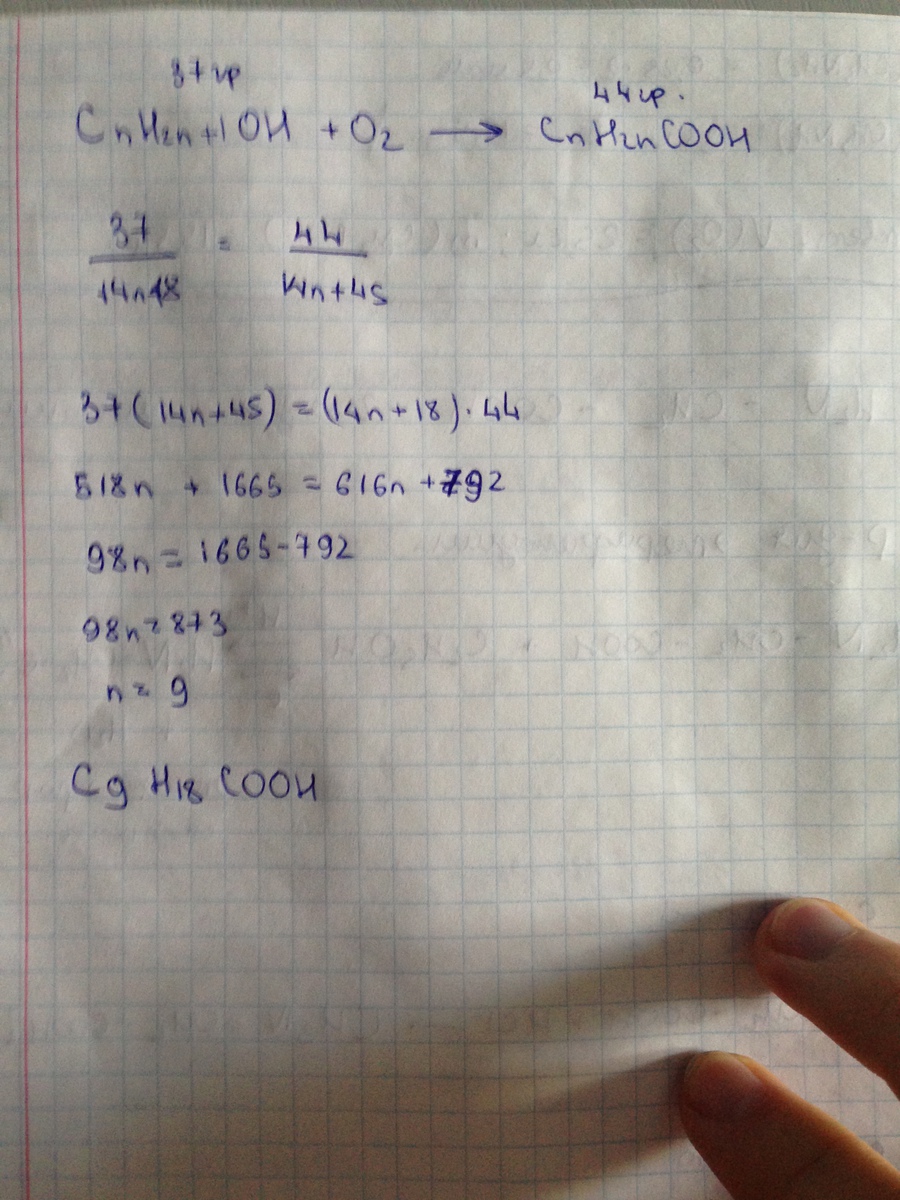 37 гр
44 гр.
CnH2n+1OH + O2 → CnH2nCOOH
37/14n+18 = 44/14n+45
37(14n+45) = (14n+18)·44
518n + 1665 = 616n + 792
98n = 1665-792
98n = 873
n = 9
C9 H18 COOH